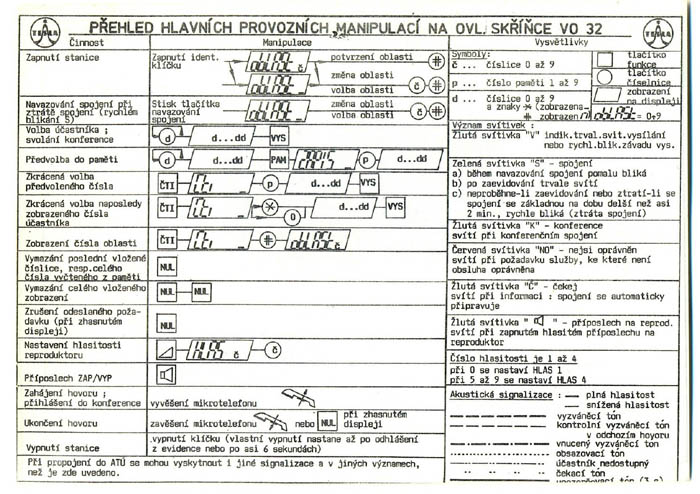 TESLA
PŘEHLED HLAVNÍCH PROVOZNÍCH MANIPULACÍ NA OVL. SKŘÍŇCE VO 32
TESLA
Činnost
Manipulace
Vysvětlivky
Zapnutí stanice
Zapnutí ident.
klíčku
potvrzení oblasti #
změna oblasti
volba oblasti č #
Navazování spojení při
ztrátě spojení (rychlém
blikání S)
Stisk tlačítka
navazování
spojení
změna oblasti
volba oblasti č #
Volba účastníka ;
svolání konference
d d...dd VYS
Předvolba do paměti
d d...dd PAM p d...dd
Zkrácená volba
předvoleného čísla
ČTI p d...dd VYS
Zkrácená volba naposledy
zobrazeného čísla
účastníka
ČTI * 0 d...dd VYS
Zobrazení čísla oblasti
ČTI # č
Vymazání poslední vložené
číslice, resp.celého
čísla vyčteného z paměti
NUL
Vymazání celého vloženého
zobrazení
NUL NUL
Zrušení odeslaného poža-
davku (při zhasnutém
displeji)
NUL
Nastavení hlasitosti
reproduktoru
č č
Příposlech ZAP/VYP
Zahájení hovoru ;
přihlášení do konference
vyvěšení mikrotelefonu
Ukončení hovoru
zavěšení mikrotelefonu nebo NUL při zhasnutém
displeji
Vypnutí stanice
vypnutí klíčku (vlastní vypnutí nastane až po odhlášení
z evidence nebo po asi 6 sekundách)
Při propojení do ATÚ se mohou vyskytnout i jiné signalizace a v jiných významech,
než je zde uvedeno.
Symboly:
č ... číslice 0 až 9
p ... číslo paměti 1 až 9
d ... číslice 0 až 9
a znaky * (zobrazena
# zobrazen
= 0÷9
tlačítko
funkce
tlačítko
číselnice
zobrazení
na displeji
Význam svítivek :
Žlutá svítivka "V" indik.trval.svit.vysílání
nebo rychl.blik.závadu vys.
Zelená svítivka "S" - spojení
a) během navazování spojení pomalu bliká
b) po zaevidování trvale svítí
c) neproběhne-li zaevidování nebo ztratí-li se
spojení se základnou na dobu delší než asi
2 min., rychle bliká (ztráta spojení)
Žlutá svítivka "K" - konference
svítí při konferenčním spojení
Červená svítivka "NO" - nejsi oprávněn
svítí při požadavku služby, ke které není
obsluha oprávněna
Žlutá svítivka "Č" - čekej
svítí při informaci : spojení se automaticky
připravuje
Žlutá svítivka " " - příposlech na reprod.
svítí při zapnutém hlasitém příposlechu na
reproduktor
Číslo hlasitosti je 1 až 4
při 0 se nastaví HLAS 1
při 5 až 9 se nastaví HLAS 4
Akustická signalizace : — plná hlasitost
— snížená hlasitost
vyzváněcí tón
kontrolní vyzváněcí tón
v odchozím hovoru
vnucený vyzváněcí tón
obsazovací tón
účastník nedostupný
čekací tón